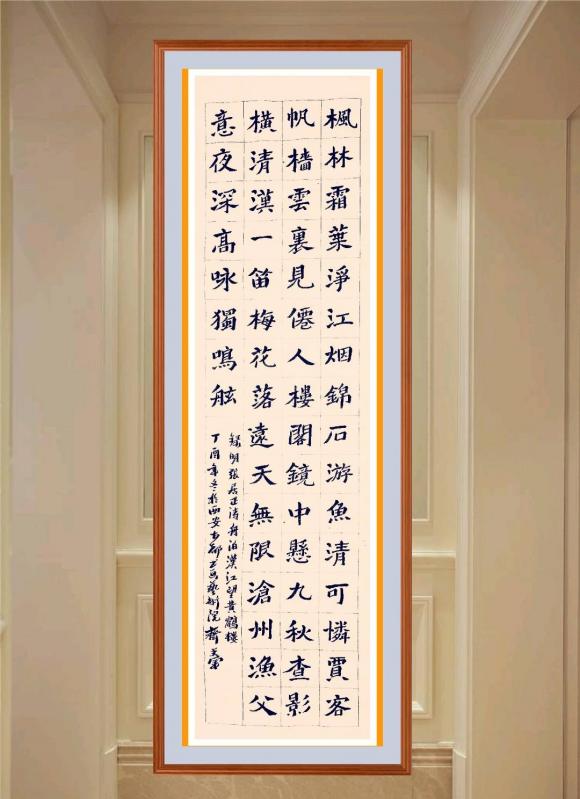 楓林霜葉淨江烟錦石游魚清可憐賈客
帆檣雲裏見僊人樓閣鏡中懸九秋查影
橫清漢一笛梅花落遠天無限滄州漁父
意夜深髙咏獨鳴舷
録明張居正詩舟泊漢江望黄鶴樓
丁酉年冬於西安古都书画藝術院